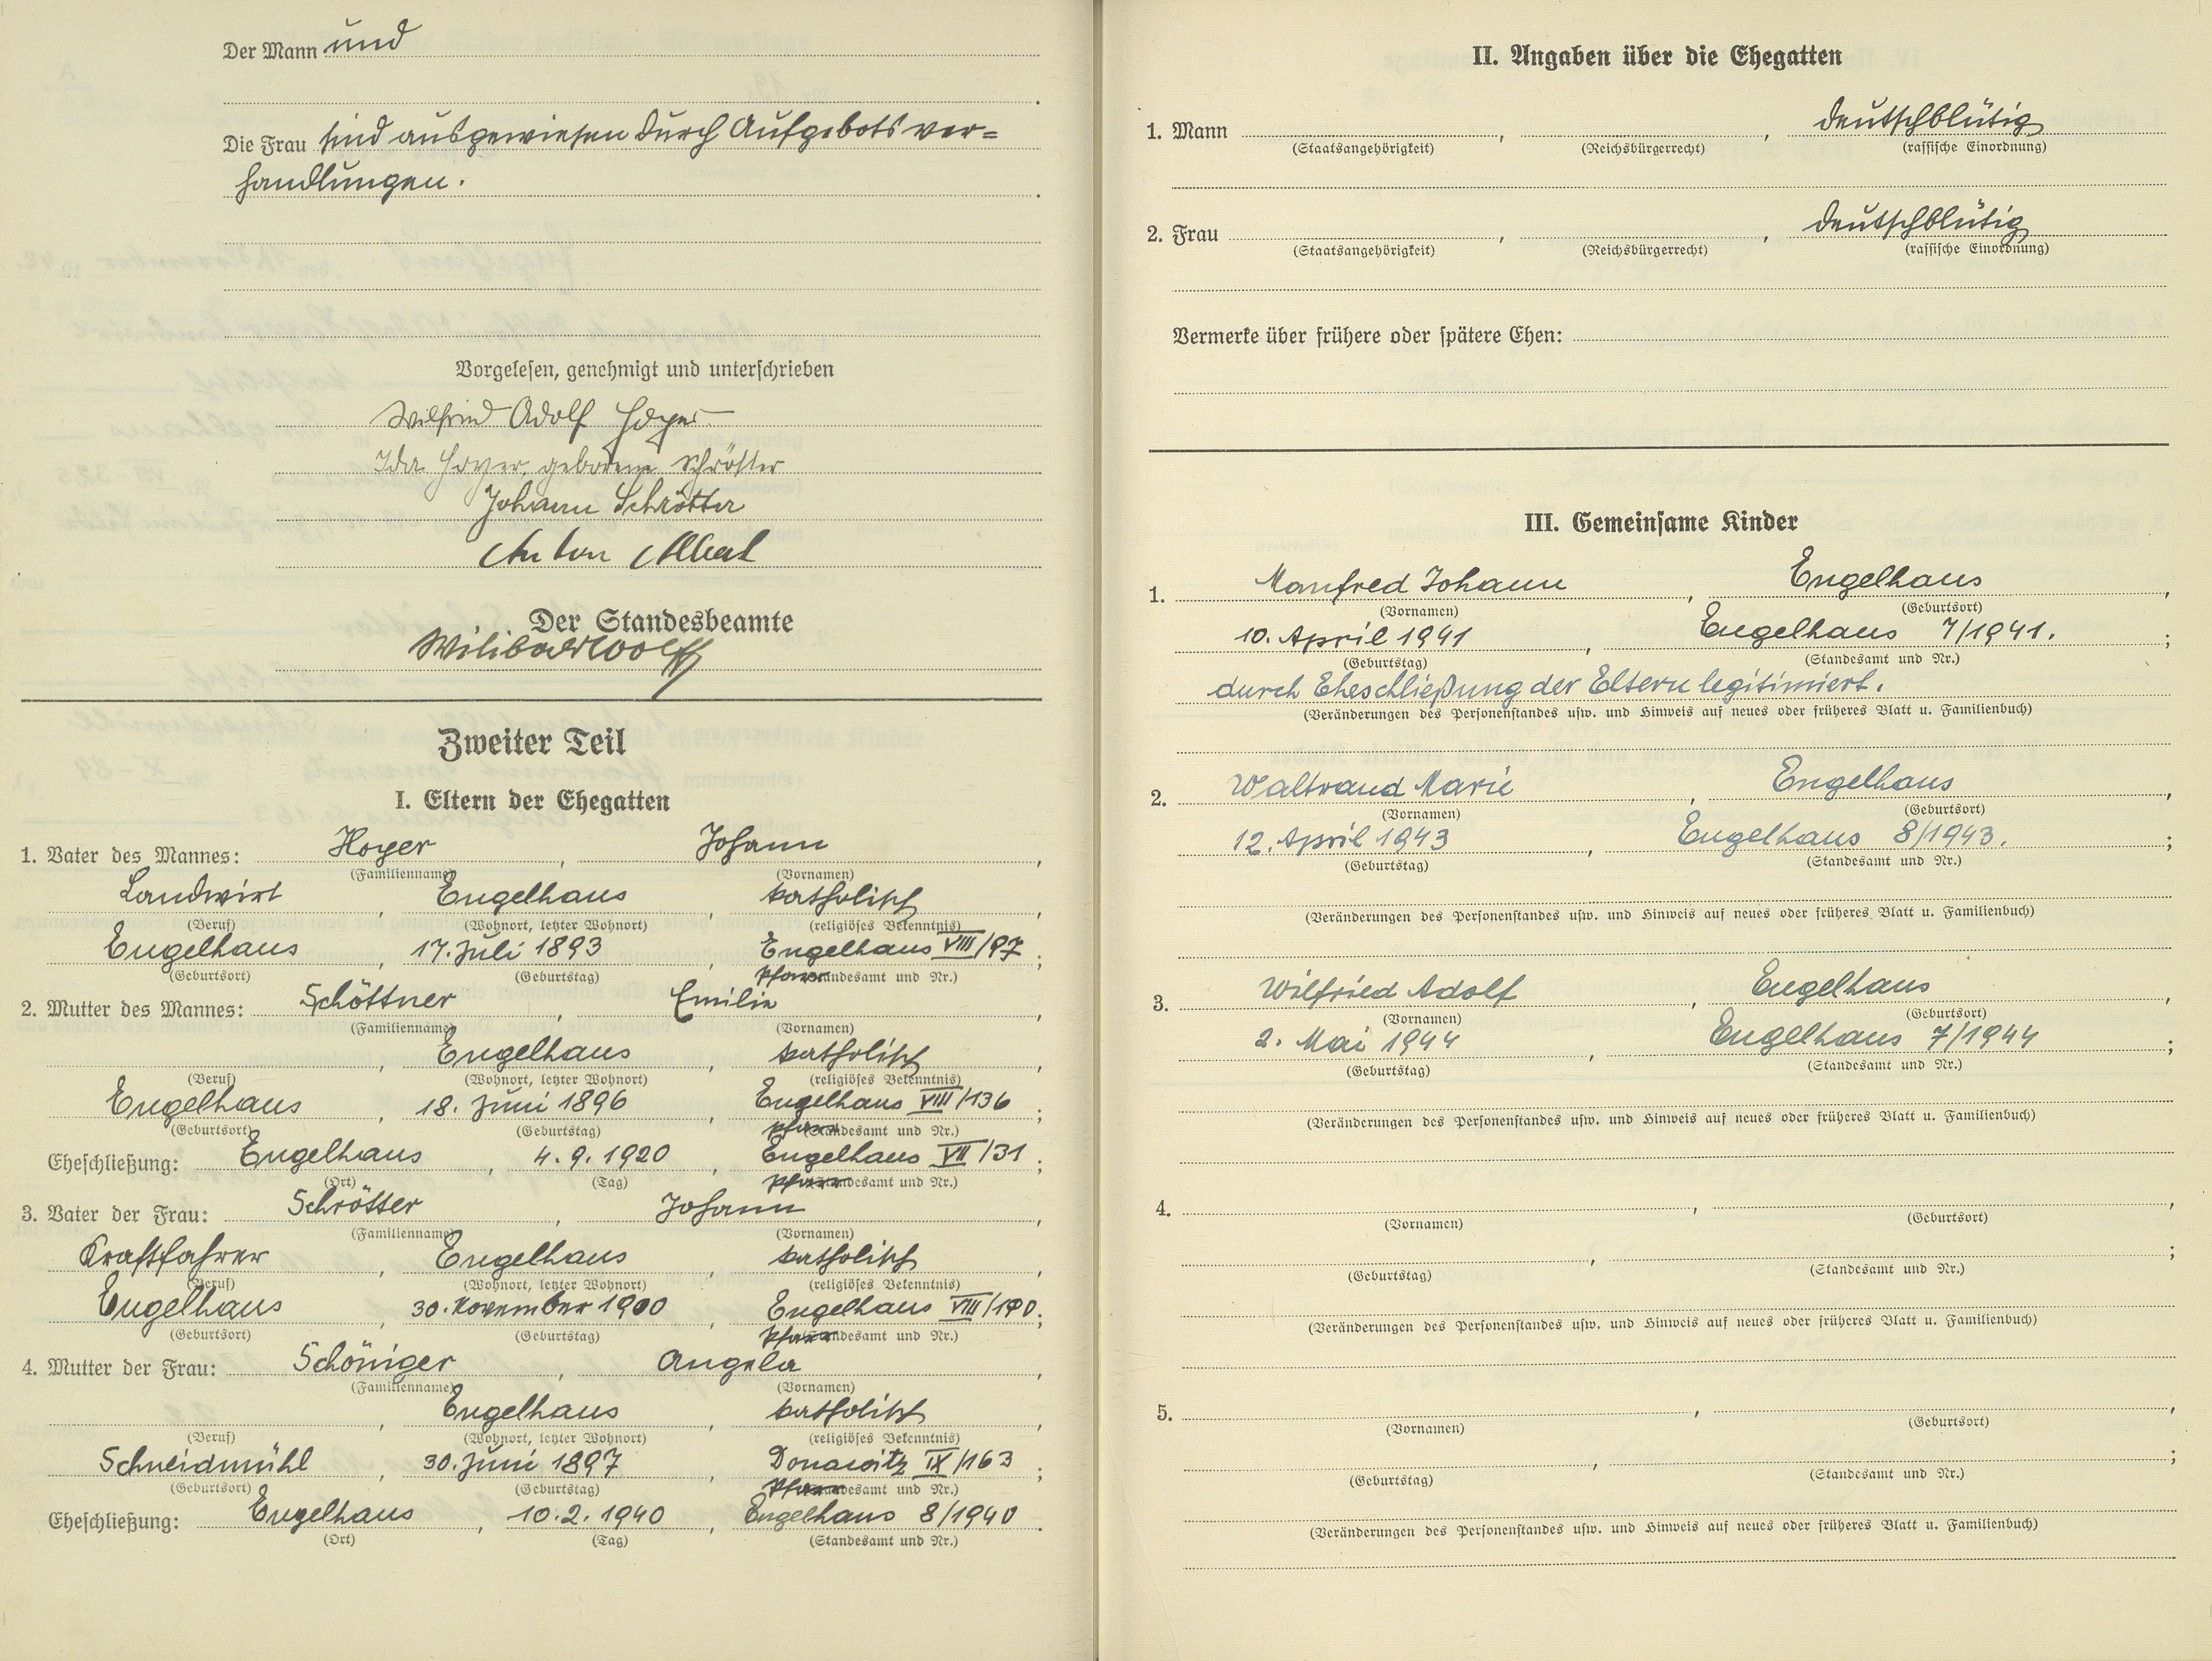 Der Mann und
Die Frau sind ausgewiesen durch Aufgebotsver=
handlungen.
Vorgelesen, genehmigt und unterschrieben
Wilfried Adolf Hoyer
Ida Hoyer, geborene Schrötter
Johann Schrötter
Anton Albert
Der Standesbeamte
Wilibald Wolf
Zweiter Teil
I. Eltern der Ehegatten
1. Vater des Mannes: Hoyer, Johann,
(Familienname) (Vornamen)
Landwirt, Engelhaus, katholisch,
(Beruf) (Wohnort, letzter Wohnort) (religiöses Bekenntnis)
Engelhaus, 17. Juli 1893, Engelhaus VIII/97;
(Geburtsort) (Geburtstag) Pfarr (Standesamt und Nr.)
2. Mutter des Mannes: Schöttner, Emilie,
(Familienname) (Vornamen)
, Engelhaus, katholisch,
(Beruf) (Wohnort, letzter Wohnort) (religiöses Bekenntnis)
Engelhaus, 18. Juni 1896, Engelhaus VIII/136;
(Geburtsort) (Geburtstag) Pfarr (Standesamt und Nr.)
Eheschließung: Engelhaus, 4.9.1920, Engelhaus VII/31;
(Ort) (Tag) Pfarr (Standesamt und Nr.)
3. Vater der Frau: Schrötter, Johann,
(Familienname) (Vornamen)
Kraftfahrer, Engelhaus, katholisch,
(Beruf) (Wohnort, letzter Wohnort) (religiöses Bekenntnis)
Engelhaus, 30. November 1900, Engelhaus VIII/190;
(Geburtsort) (Geburtstag) Pfarr (Standesamt und Nr.)
4. Mutter der Frau: Schöniger, Angela,
(Familienname) (Vornamen)
, Engelhaus, katholisch,
(Beruf) (Wohnort, letzter Wohnort) (religiöses Bekenntnis)
Schneidmühl, 30. Juni 1897, Donawitz IX/163;
(Geburtsort) (Geburtstag) Pfarr (Standesamt und Nr.)
Eheschließung: Engelhaus, 10.2.1940, Engelhaus 8/1940.
(Ort) (Tag) (Standesamt und Nr.)
II. Angaben über die Ehegatten
1. Mann , , deutschblütig
(Staatsangehörigkeit) (Reichsbürgerrecht) (rassische Einordnung)
2. Frau , , deutschblütig
(Staatsangehörigkeit) (Reichsbürgerrecht) (rassische Einordnung)
Vermerke über frühere oder spätere Ehen:
III. Gemeinsame Kinder
1. Manfred Johann, Engelhaus,
(Vornamen) (Geburtsort)
10. April 1941, Engelhaus 7/1941.;
(Geburtstag) (Standesamt und Nr.)
durch Eheschließung der Eltern legitimiert.
(Veränderungen des Personenstandes usw. und Hinweis auf neues oder früheres Blatt u. Familienbuch)
2. Waltraud Marie, Engelhaus,
(Vornamen) (Geburtsort)
12. April 1943, Engelhaus 8/1943.;
(Geburtstag) (Standesamt und Nr.)
(Veränderungen des Personenstandes usw. und Hinweis auf neues oder früheres Blatt u. Familienbuch)
3. Wilfried Adolf, Engelhaus,
(Vornamen) (Geburtsort)
2. Mai 1944, Engelhaus 7/1944;
(Geburtstag) (Standesamt und Nr.)
(Veränderungen des Personenstandes usw. und Hinweis auf neues oder früheres Blatt u. Familienbuch)
4. , ,
(Vornamen) (Geburtsort)
, ;
(Geburtstag) (Standesamt und Nr.)
(Veränderungen des Personenstandes usw. und Hinweis auf neues oder früheres Blatt u. Familienbuch)
5. , ,
(Vornamen) (Geburtsort)
, ;
(Geburtstag) (Standesamt und Nr.)
(Veränderungen des Personenstandes usw. und Hinweis auf neues oder früheres Blatt u. Familienbuch)